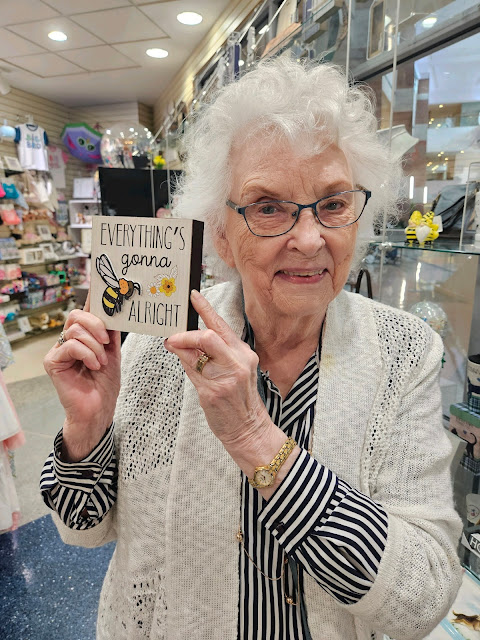 EVERYTHING'S
gonna
ALRIGHT